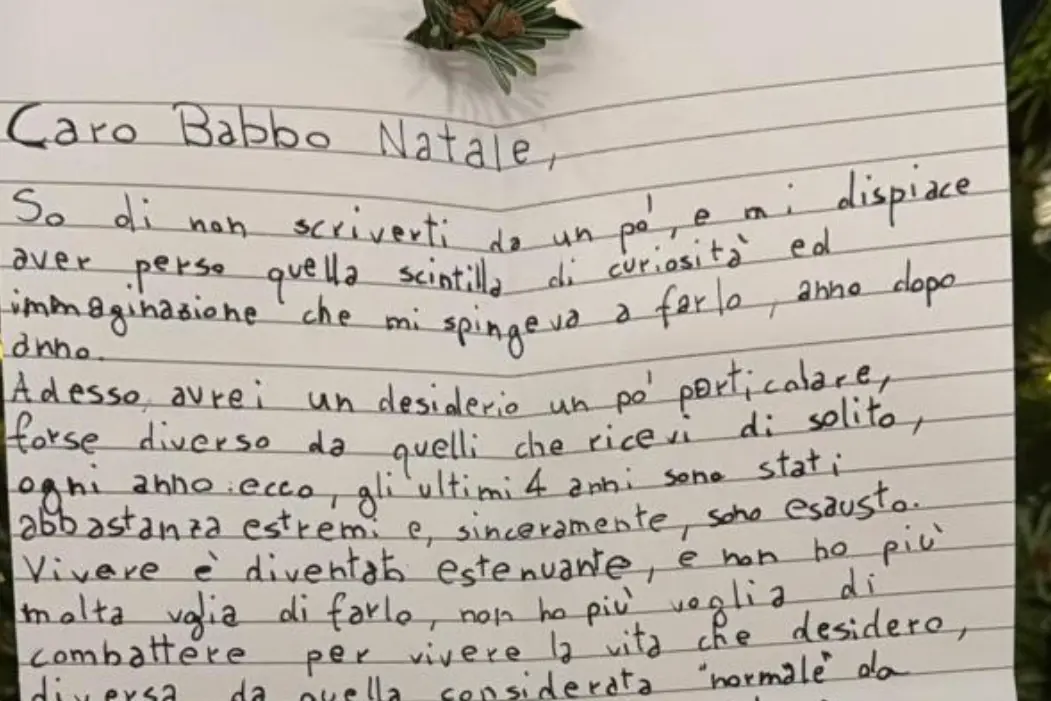 Caro Babbo Natale,
So di non scriverti da un po', e mi dispiace
aver perso quella scintilla di curiosità ed
immaginazione che mi spingeva a farlo, anno dopo
anno.
Adesso, avrei un desiderio un po' particolare,
forse diverso da quelli che ricevi di solito,
ogni anno: ecco, gli ultimi 4 anni sono stati
abbastanza estremi e, sinceramente, sono esausto.
Vivere è diventato estenuante, e non ho più
molta voglia di farlo, non ho più voglia di
combattere per vivere la vita che desidero,
diversa da quella considerata "normale" da